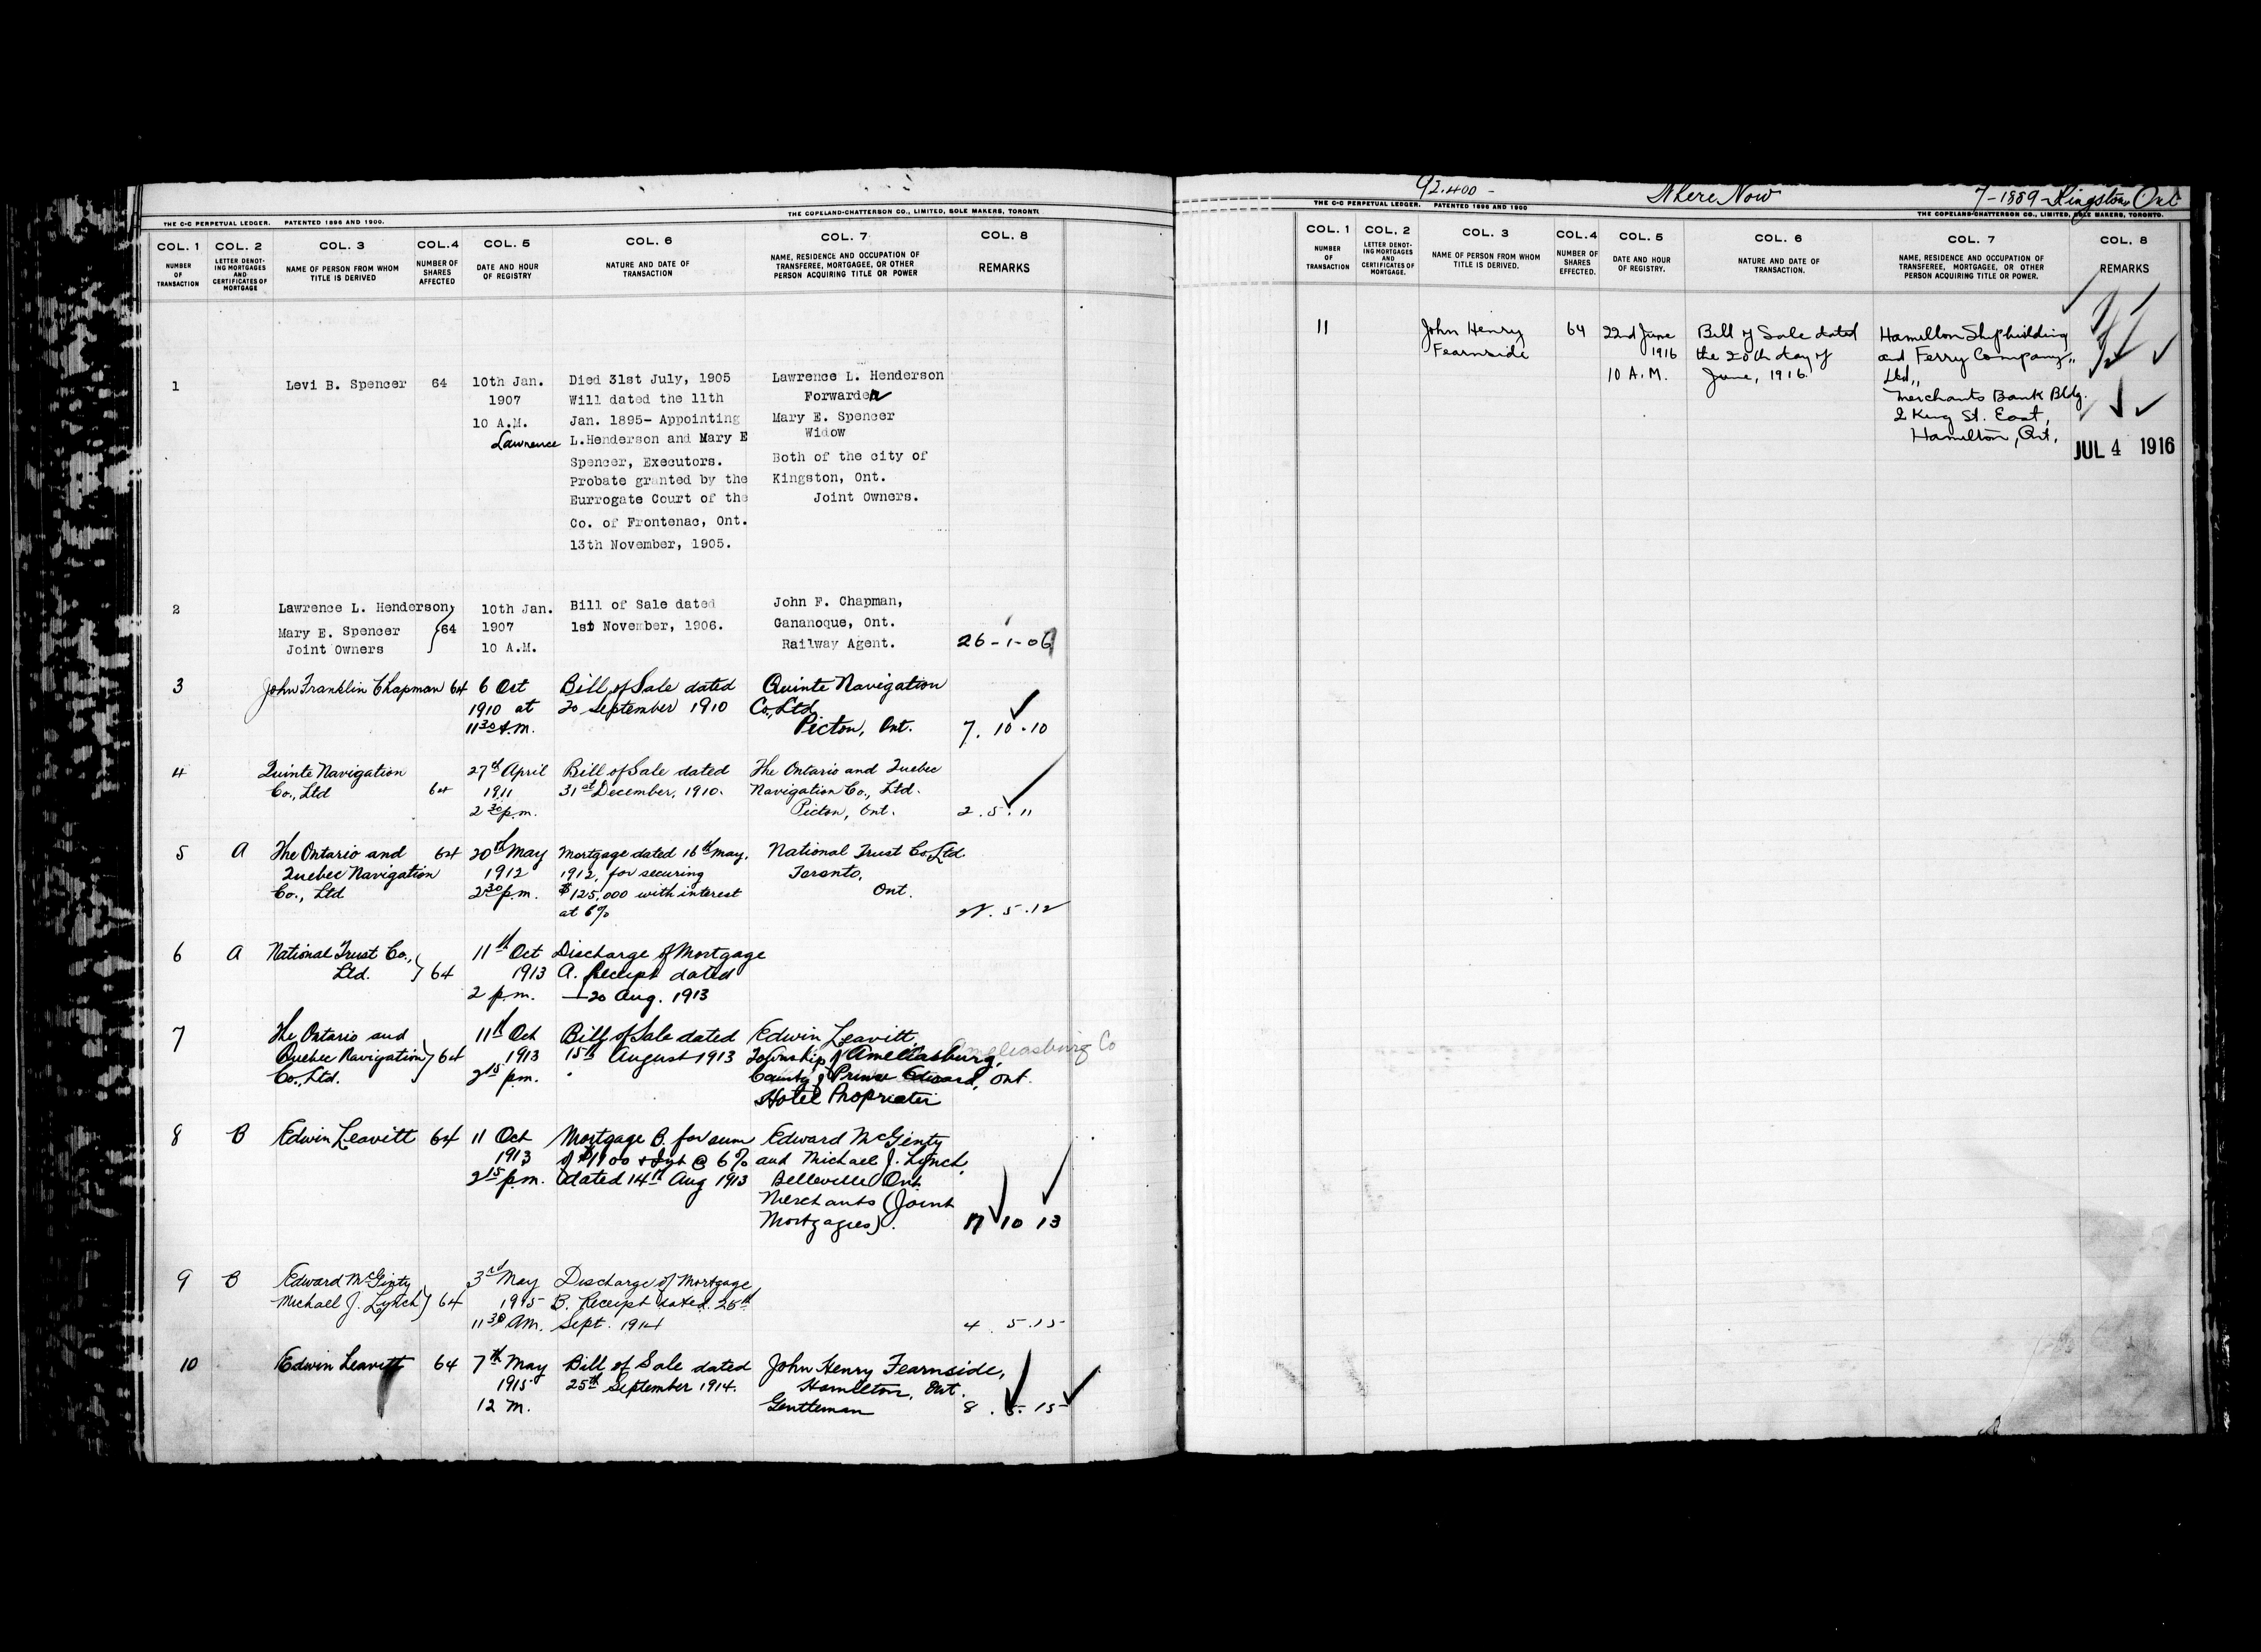 THE C-C PERPETUAL LEDGER. PATENTED 1896 AND 1900.
THE COPELAND-CHATTERSON CO., LIMITED, SOLE MAKERS, TORONT
COL. 1 COL. 2 COL. 3 COL.4 COL. 5 COL. 6 COL. 7 COL. 8
NUMBER OF TRANSACTION
LETTER DENOT-ING MORTGAGES AND CERTIFICATES OF MORTGAGE
NAME OF PERSON FROM WHOM TITLE IS DERIVED
NUMBER OF SHARES AFFECTED
DATE AND HOUR OF REGISTRY
NATURE AND DATE OF TRANSACTION
NAME, RESIDENCE AND OCCUPATION OF TRANSFEREE, MORTGAGEE, OR OTHER PERSON ACQUIRING TITLE OR POWER
REMARKS
1 Levi B. Spencer 64 10th Jan. Died 31st July, 1905 Lawrence L. Henderson
1907 Will dated the 11th Forwarder
10 A.M. Jan. 1895- Appointing Mary E. Spencer
Lawrence L.Henderson and Mary E Widow
Spencer, Executors. Both of the city of
Probate granted by the Kingston, Ont.
Eurrogate Court of the Joint Owners.
Co. of Frontenac, Ont.
13th November, 1905.
2 Lawrence L. Henderson, 10th Jan. Bill of Sale dated John F. Chapman,
Mary E. Spencer 64 1907 1st November, 1906. Gananoque, Ont.
Joint Owners 10 A.M. Railway Agent. 26-1-06
3 John Franklin Chapman 64 6 Oct Bill of Sale dated Quinte Navigation
1910 at 20 September 1910 Co., Ltd
11 30 A.M. Picton, Ont. 7. 10.10
4 Quinte Navigation 27th April Bill of Sale dated The Ontario and Quebec
Co., Ltd 64 1911 31st December, 1910. Navigation Co., Ltd.
2 30 p.m. Picton, Ont. 2.5.11
5 A The Ontario and 64 20th May Mortgage dated 16th May, National Trust Co Ltd
Quebec Navigation 1912 1912, for securing Toronto,
Co., Ltd 2 30 p.m. $125,000 with interest Ont.
at 6% 5.12
6 A National Trust Co., 11th Oct Discharge of Mortgage
Ltd. 64 1913 A. Receipt dated
2 p.m. 20 Aug. 1913
7 The Ontario and 11th Oct Bill of Sale dated Edwin Leavitt,
Quebec Navigation 64 1913 15th August 1913 Township of Ameliasburg, Ameliasburg Co
Co., Ltd. 2 15 p.m. County of Prince Edward, Ont.
Hotel Proprietor
8 B Edwin Leavitt 64 11 Oct Mortgage B. for sum Edward McGinty
1913 of $1100 + Int @ 6% and Michael J. Lynch,
2 15 p.m. dated 14th Aug 1913 Belleville Ont
Merchants (Joint
Mortgagees). 17 10 13
9 B Edward McGinty 3rd May Discharge of Mortgage
Michael J. Lynch 64 1915 B. Receipt dated 25th
11 30 AM. Sept. 1914 4.5.15
10 Edwin Leavitt 64 7th May Bill of Sale dated John Henry Fearnside,
1915 25th September 1914. Hamilton, Ont.
12 M. Gentleman 8.5.15
92.400 - Where Now 7-1889-Kingston, Ont
THE C-C PERPETUAL LEDGER. PATENTED 1896 AND 1900
THE COPELAND-CHATTERSON CO., LIMITED, SOLE MAKERS, TORONTO.
COL. 1 COL. 2 COL. 3 COL.4 COL. 5 COL. 6 COL. 7 COL. 8
NUMBER OF TRANSACTION
LETTER DENOT-ING MORTGAGES AND CERTIFICATES OF MORTGAGE.
NAME OF PERSON FROM WHOM TITLE IS DERIVED.
NUMBER OF SHARES EFFECTED.
DATE AND HOUR OF REGISTRY.
NATURE AND DATE OF TRANSACTION.
NAME, RESIDENCE AND OCCUPATION OF TRANSFEREE, MORTGAGEE, OR OTHER PERSON ACQUIRING TITLE OR POWER.
REMARKS
11 John Henry 64 22nd June Bill of Sale dated Hamilton Shipbuilding
Fearnside 1916 the 20th day of and Ferry Company,,
10 A.M. June, 1916. Ltd,,
Merchants Bank Bldg.
2 King St. East,
Hamilton, Ont.
JUL 4 1916